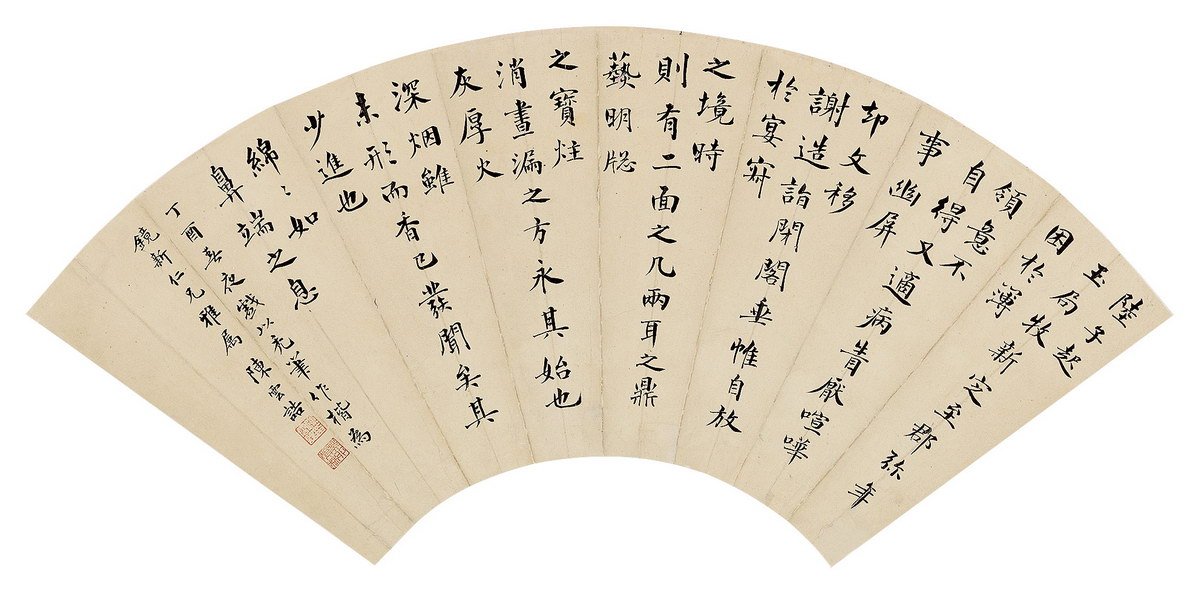 陸子起
玉局牧新定至郡弥年
困於薄
領意不
自得又適病眚厭喧嘩
事幽屏
却文移
謝造詣閉閣垂帷自放
於宴寂
之境時
則有二面之几兩耳之鼎
藝明牕
之寶炷
消晝漏之方永其始也
灰厚火
深烟雖
未形而香已發聞矣其
少進也
綿〻如
鼻端之息
丁酉春夜戲以禿筆作楷為
鏡新仁兄雅屬 陳雲誥